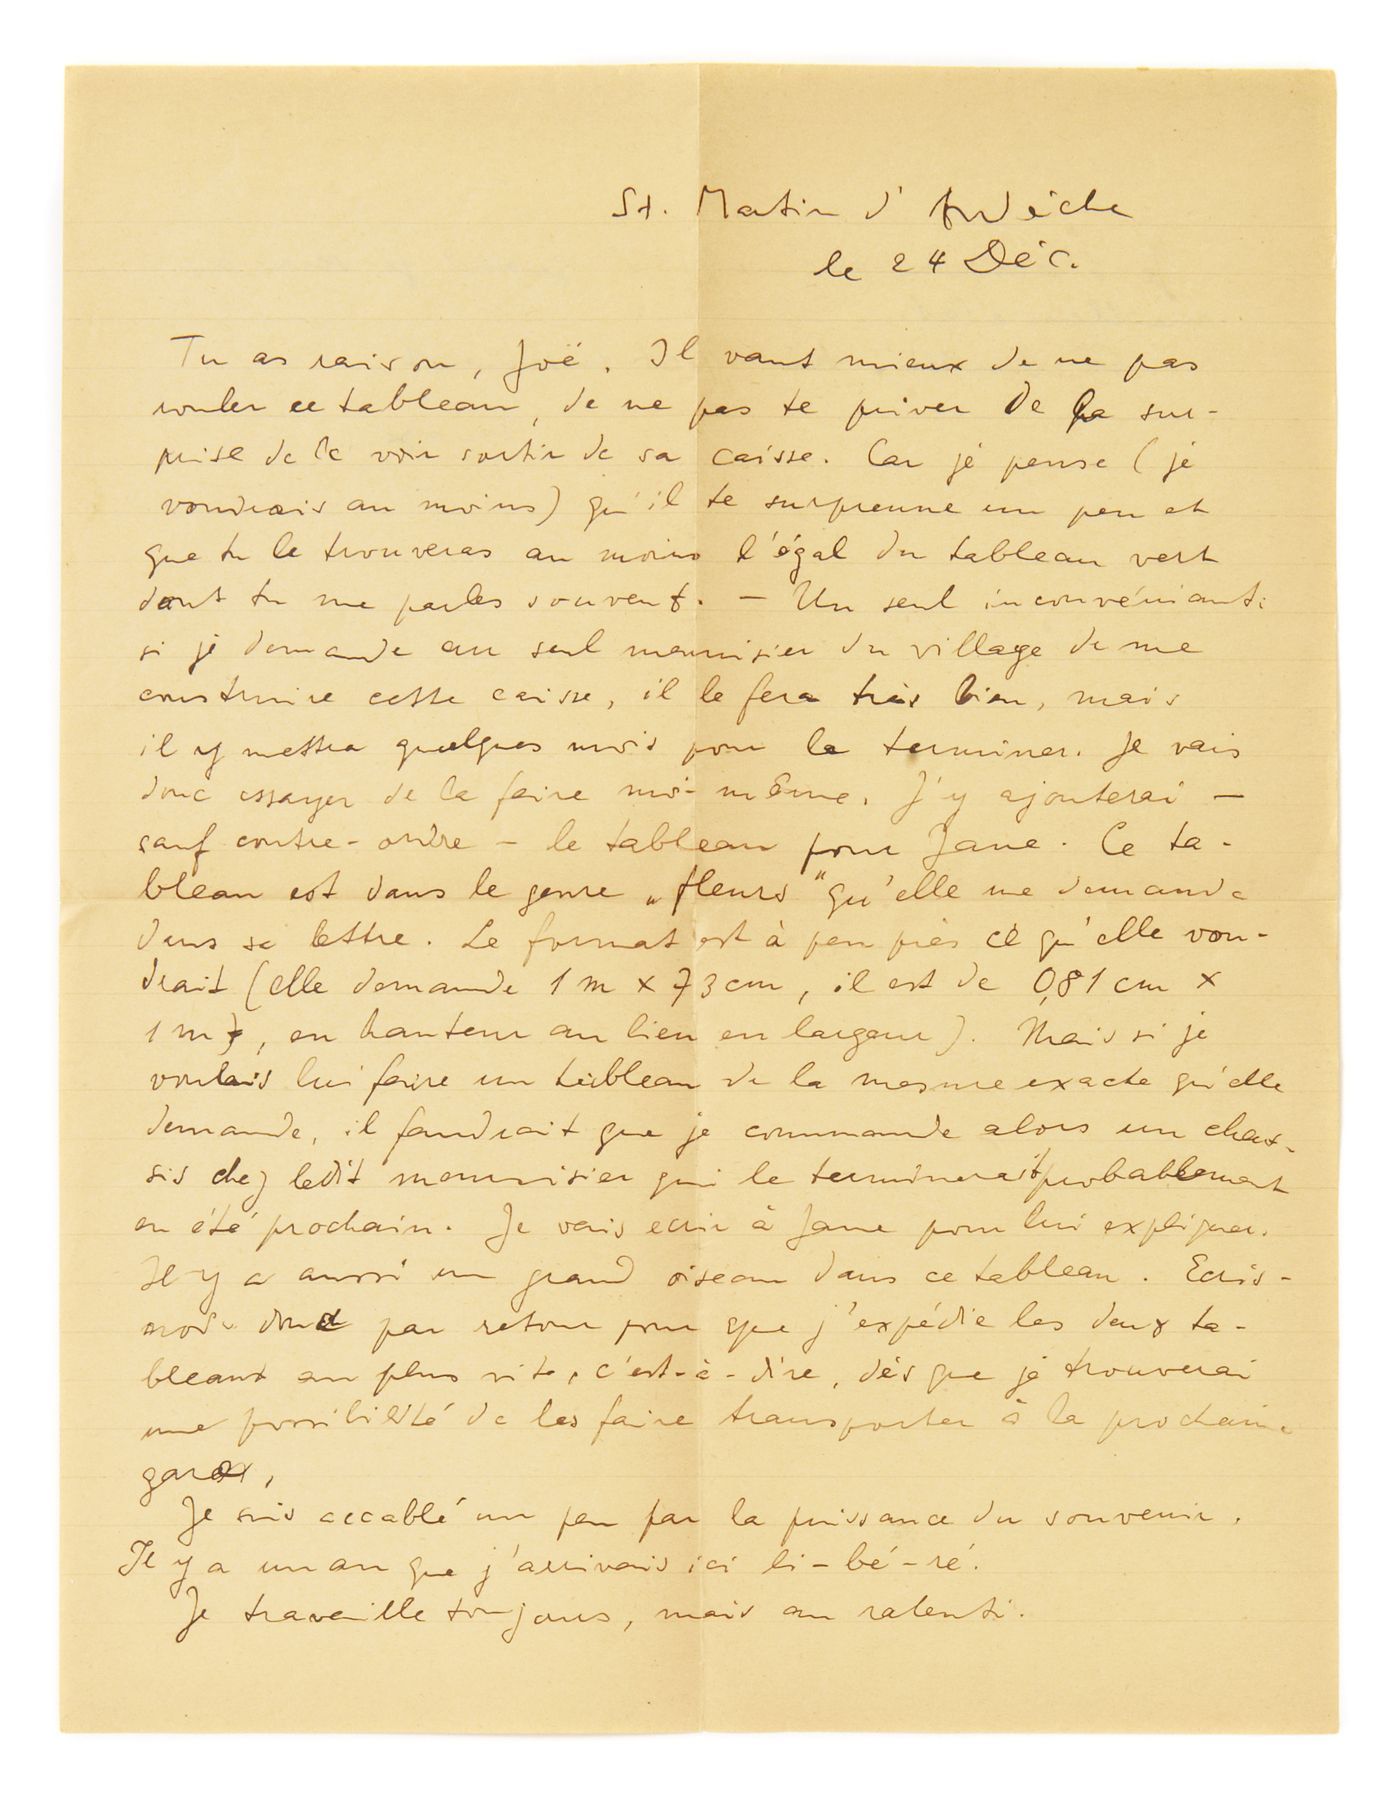 St. Martin d'Ardèche
le 24 Déc.
Tu as raison, Joë. Il vaut mieux de ne pas
rouler ce tableau, de ne pas te priver de la sur-
prise de le voir sortir de sa caisse. Car je pense (je
voudrais au moins) qu'il te surprenne un peu et
que tu le trouveras au moins l'égal du tableau vert
dont tu me parles souvent. — Un seul inconvéniant:
si je demande au seul menuisier du village de me
construire cette caisse, il le fera très bien, mais
il y mettra quelques mois pour la terminer. Je vais
donc essayer de la faire moi-même. J'y ajouterai —
sauf contre-ordre — le tableau pour Jane. Ce ta-
bleau est dans le genre „fleurs" qu'elle me demande
dans sa lettre. Le format est à peu près ce qu'elle vou-
drait (elle demande 1 m x 73 cm, il est de 0,81 cm x
1 m, en hauteur au lieu en largeur). Mais si je
voulais lui faire un tableau de la mesure exacte qu'elle
demande, il faudrait que je commande alors un chas-
sis chez ledit menuisier qui le terminerait probablement
en été prochain. Je vais ecrir à Jane pour lui expliquer.
Il y a aussi un grand oiseau dans ce tableau. Ecris-
moi donc par retour pour que j'expédie les deux ta-
bleaux au plus vite, c'est-à-dire, dès que je trouverai
une possibilité de les faire transporter à la prochaine
gare.
Je suis accablé un peu par la puissance du souvenir.
Il y a un an que j'arrivais ici li-bé-ré.
Je travaille toujours, mais au ralenti.